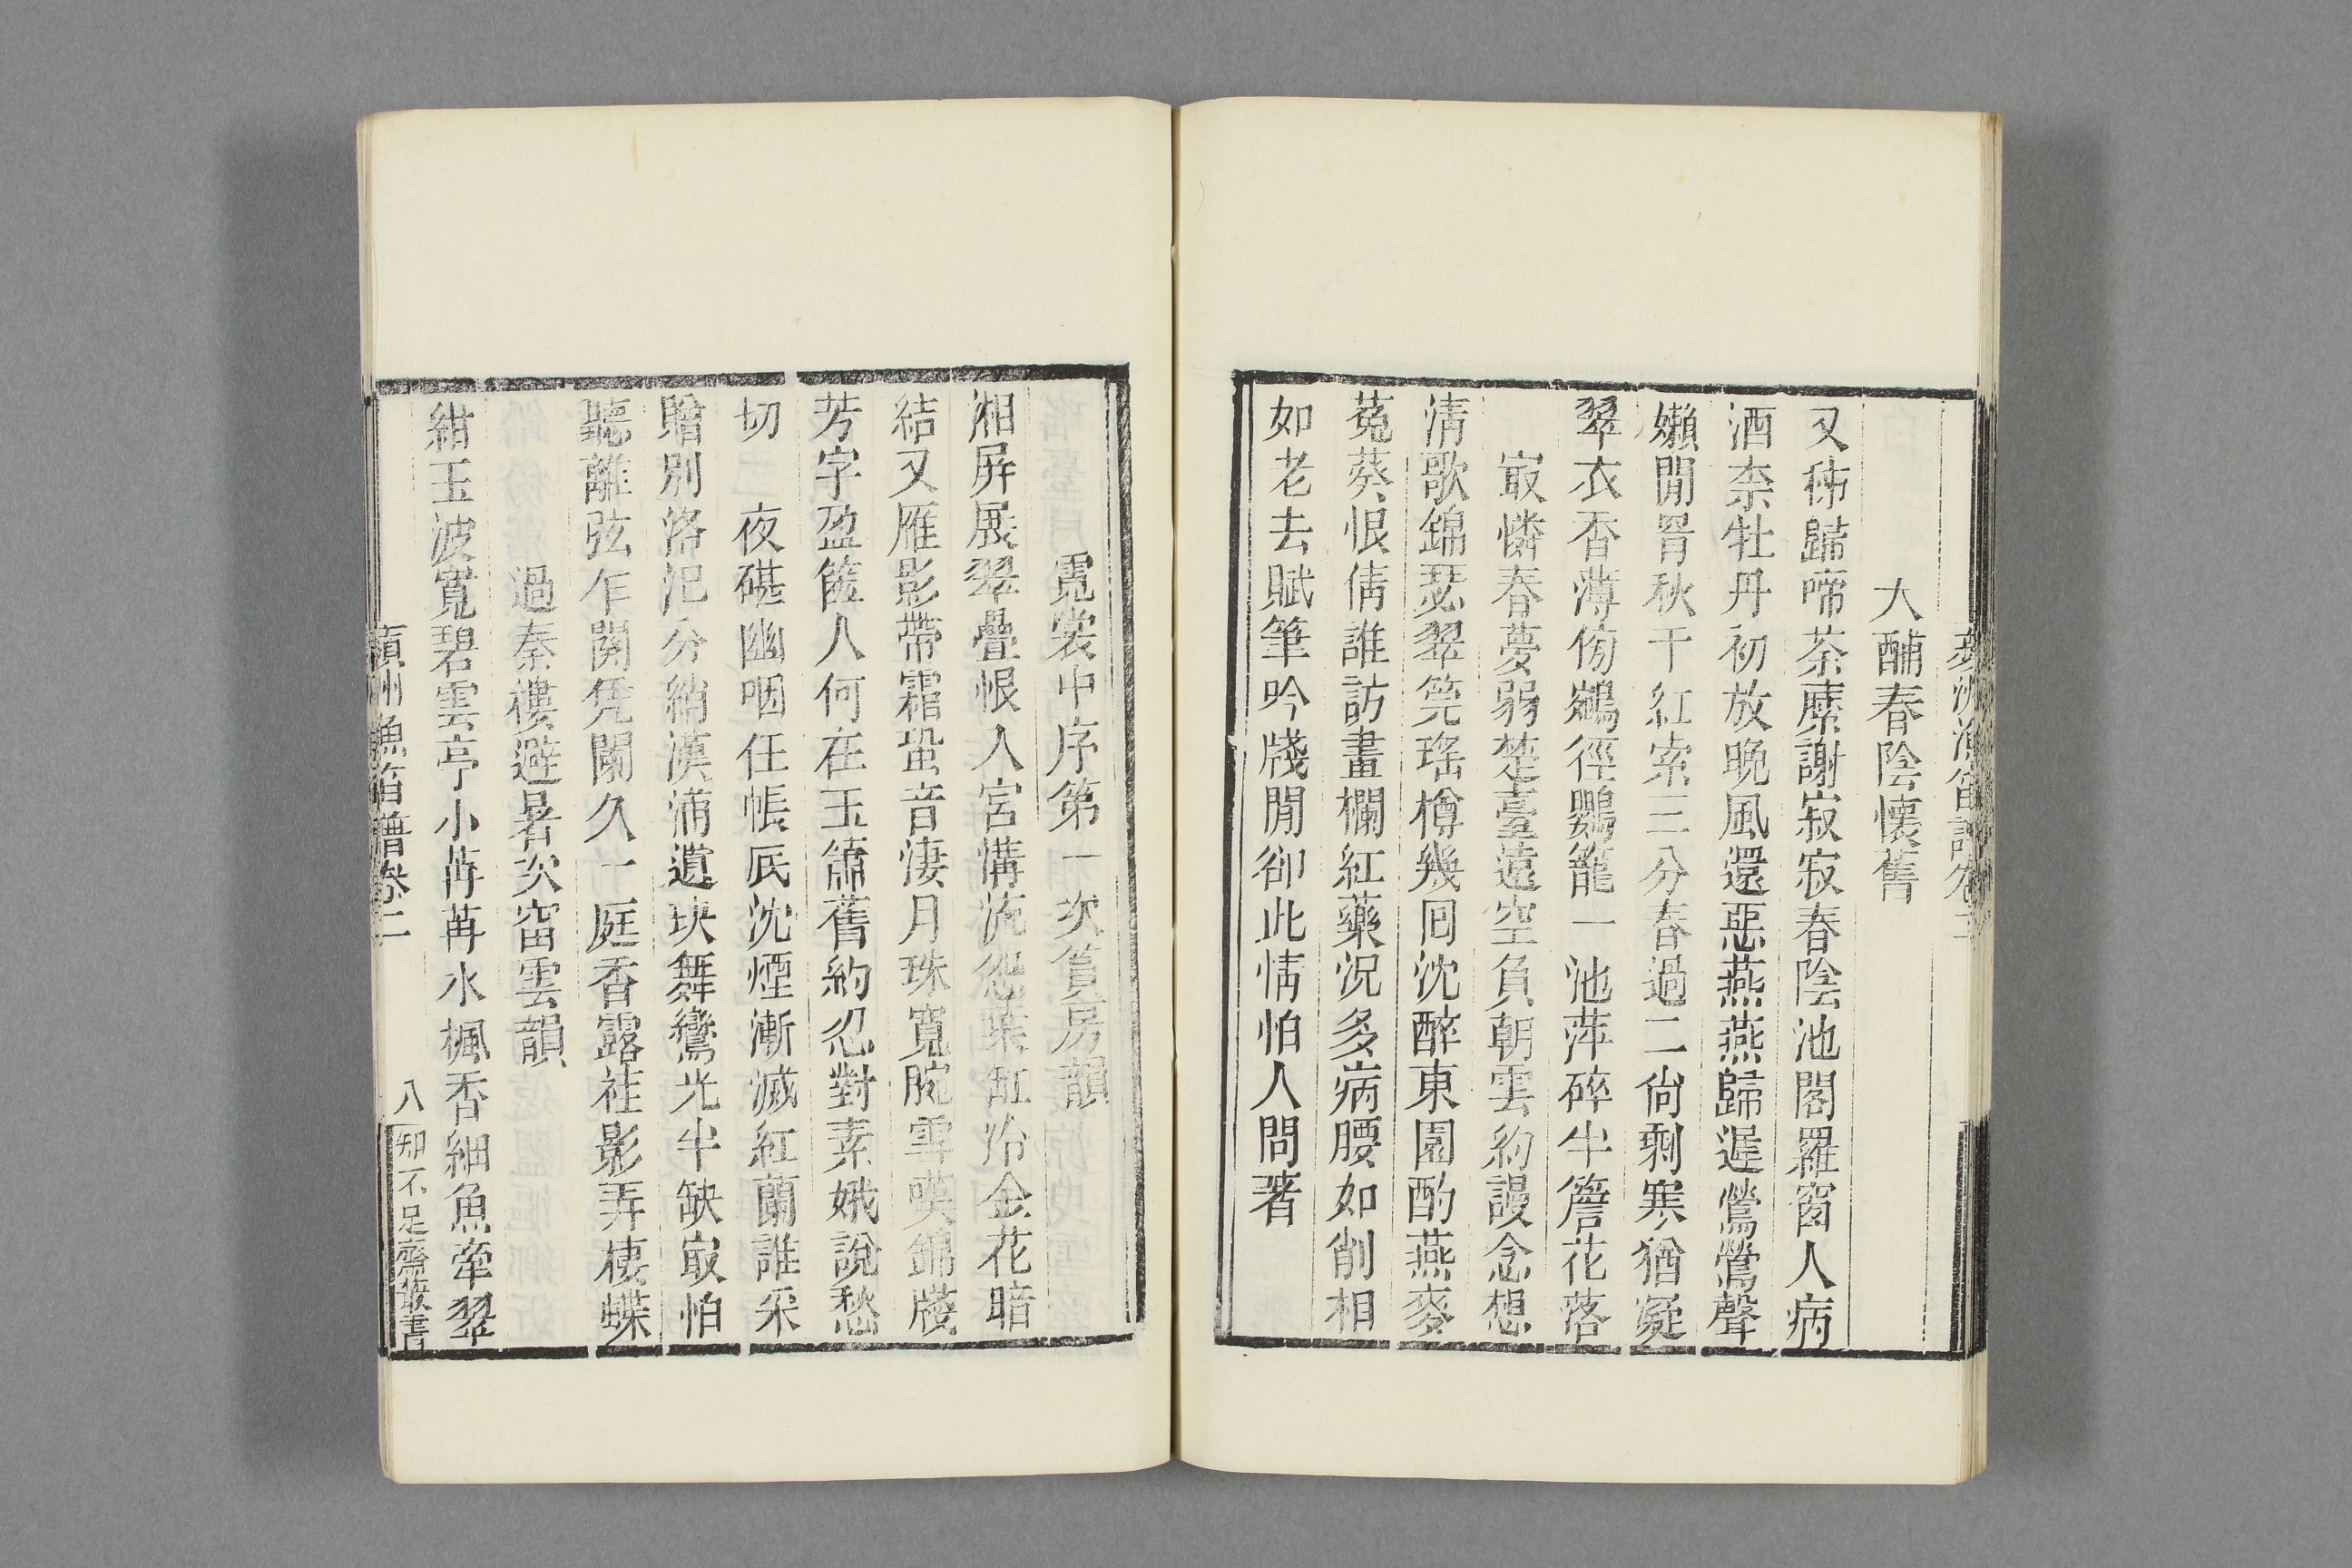 大酺春陰懷舊
又秭歸啼荼䕷謝寂寂春陰池閣羅窗人病
酒柰牡丹初放晚風還惡燕燕歸遲鶯鶯聲
嬾閒罥秋千紅索三分春過二尙剩寒猶凝
翠衣香薄傍鵷徑鸚籠一池萍碎半簷花落
㝡憐春夢弱楚臺遠空負朝雲約謾念想
淸歌錦瑟翠筦瑤樽幾囘沈醉東園酌燕麥
菟葵恨倩誰訪畫欄紅藥況多病腰如削相
如老去賦筆吟牋閒卻此情怕人問著
霓裳中序第一次篔房韻
湘屏展翠疊恨入宮溝流怨葉缸冷金花暗
結又雁影帶霜蛩音淒月珠寬腕雪嘆錦牋
芳字盈篋人何在玉簫舊約忍對素娥說愁
切 夜碪幽咽任帳厎沈煙漸滅紅蘭誰采
贈別洛汜分綃漢浦遺玦舞鸞光半缺㝡怕
聽離弦乍闋凭闌久一庭香露桂影弄棲蝶
過秦樓避暑次窗雲韻
紺玉波寬碧雲亭小苒苒水楓香細魚牽翠
蘋洲漁笛譜卷二
八
知不足齋叢書